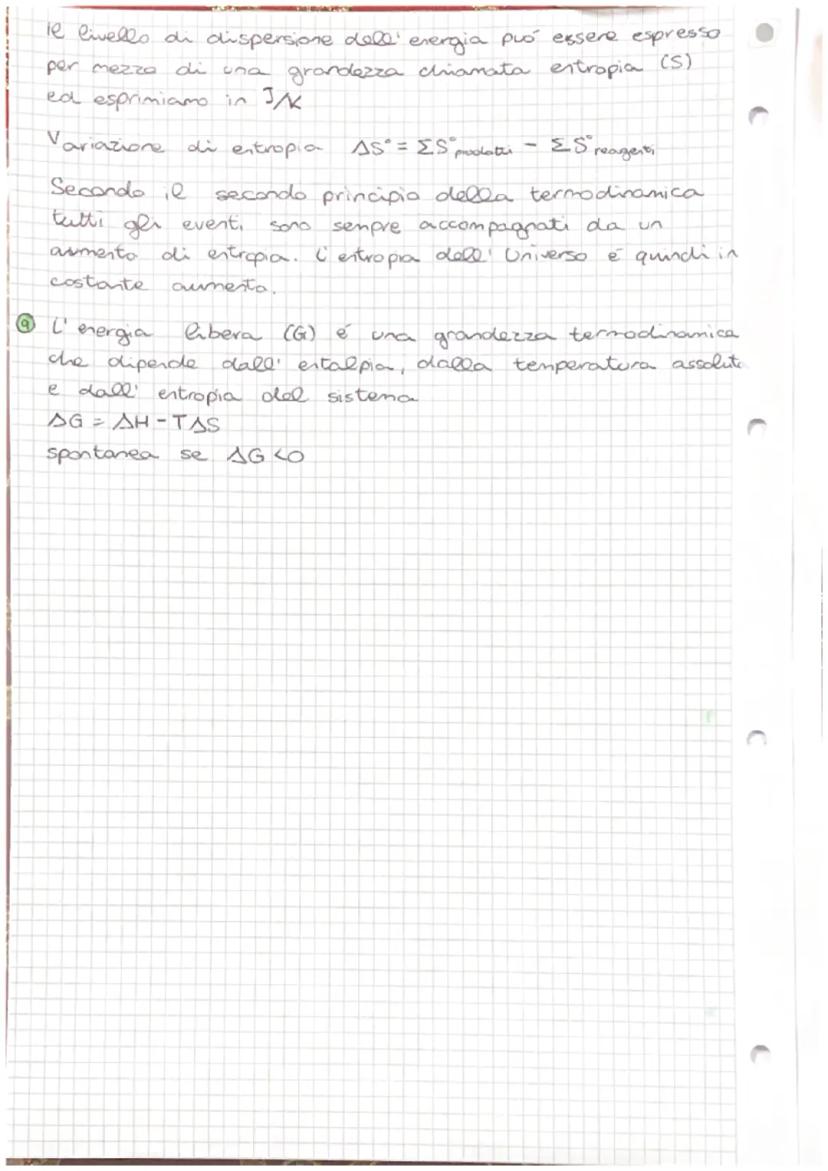 il livello di dispersione dell'energia può essere espresso
per mezzo di una grandezza chiamata entropia (S)
ed esprimiamo in J/K
Variazione di entropia ΔS° = ΣS°prodotti - ΣS°reagenti
Secondo il secondo principio della termodinamica
tutti gli eventi sono sempre accompagnati da un
aumento di entropia. L'entropia dell'Universo è quindi in
costante aumento.
9 L'energia libera (G) é una grandezza termodinamica
che dipende dall'entalpia, dalla temperatura assoluta
e dall'entropia del sistema
ΔG = ΔH - TΔS
spontanea se ΔG <0